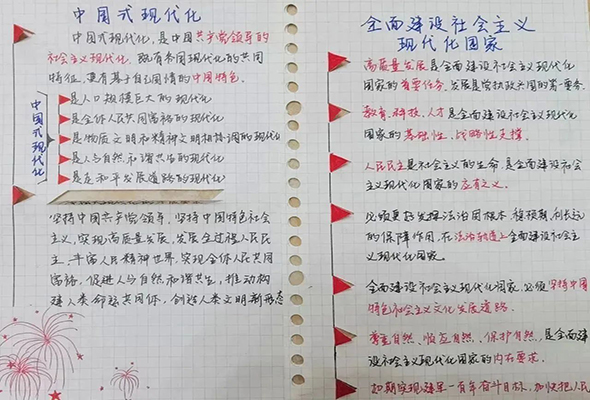 中国式现代化
中国式现代化,是中国共产党领导的
社会主义现代化,既有各国现代化的共同
特征,更有基于自己国情的中国特色。
中国式现代化
是人口规模巨大的现代化
是全体人民共同富裕的现代化
是物质文明和精神文明相协调的现代化
是人与自然和谐共生的现代化
是走和平发展道路的现代化
坚持中国共产党领导,坚持中国特色社会
主义,实现高质量发展,发展全过程人民民
主,丰富人民精神世界,实现全体人民共同
富裕,促进人与自然和谐共生,推动构
建人类命运共同体,创造人类文明新形态
全面建设社会主义
现代化国家
高质量发展是全面建设社会主义现代化
国家的首要任务。发展是党执政兴国的第一要务。
教育、科技、人才是全面建设社会主义现代化
国家的基础性、战略性支撑。
人民民主是社会主义的生命,是全面建设社会
主义现代化国家的应有之义。
必须更好发挥法治固根本、稳预期、利长远
的保障作用,在法治轨道上全面建设社会主
义现代化国家。
全面建设社会主义现代化国家,必须坚持中国
特色社会主义文化发展道路。
尊重自然、顺应自然、保护自然,是全面建
设社会主义现代化国家的内在要求。
如期实现建军一百年奋斗目标,加快把人民